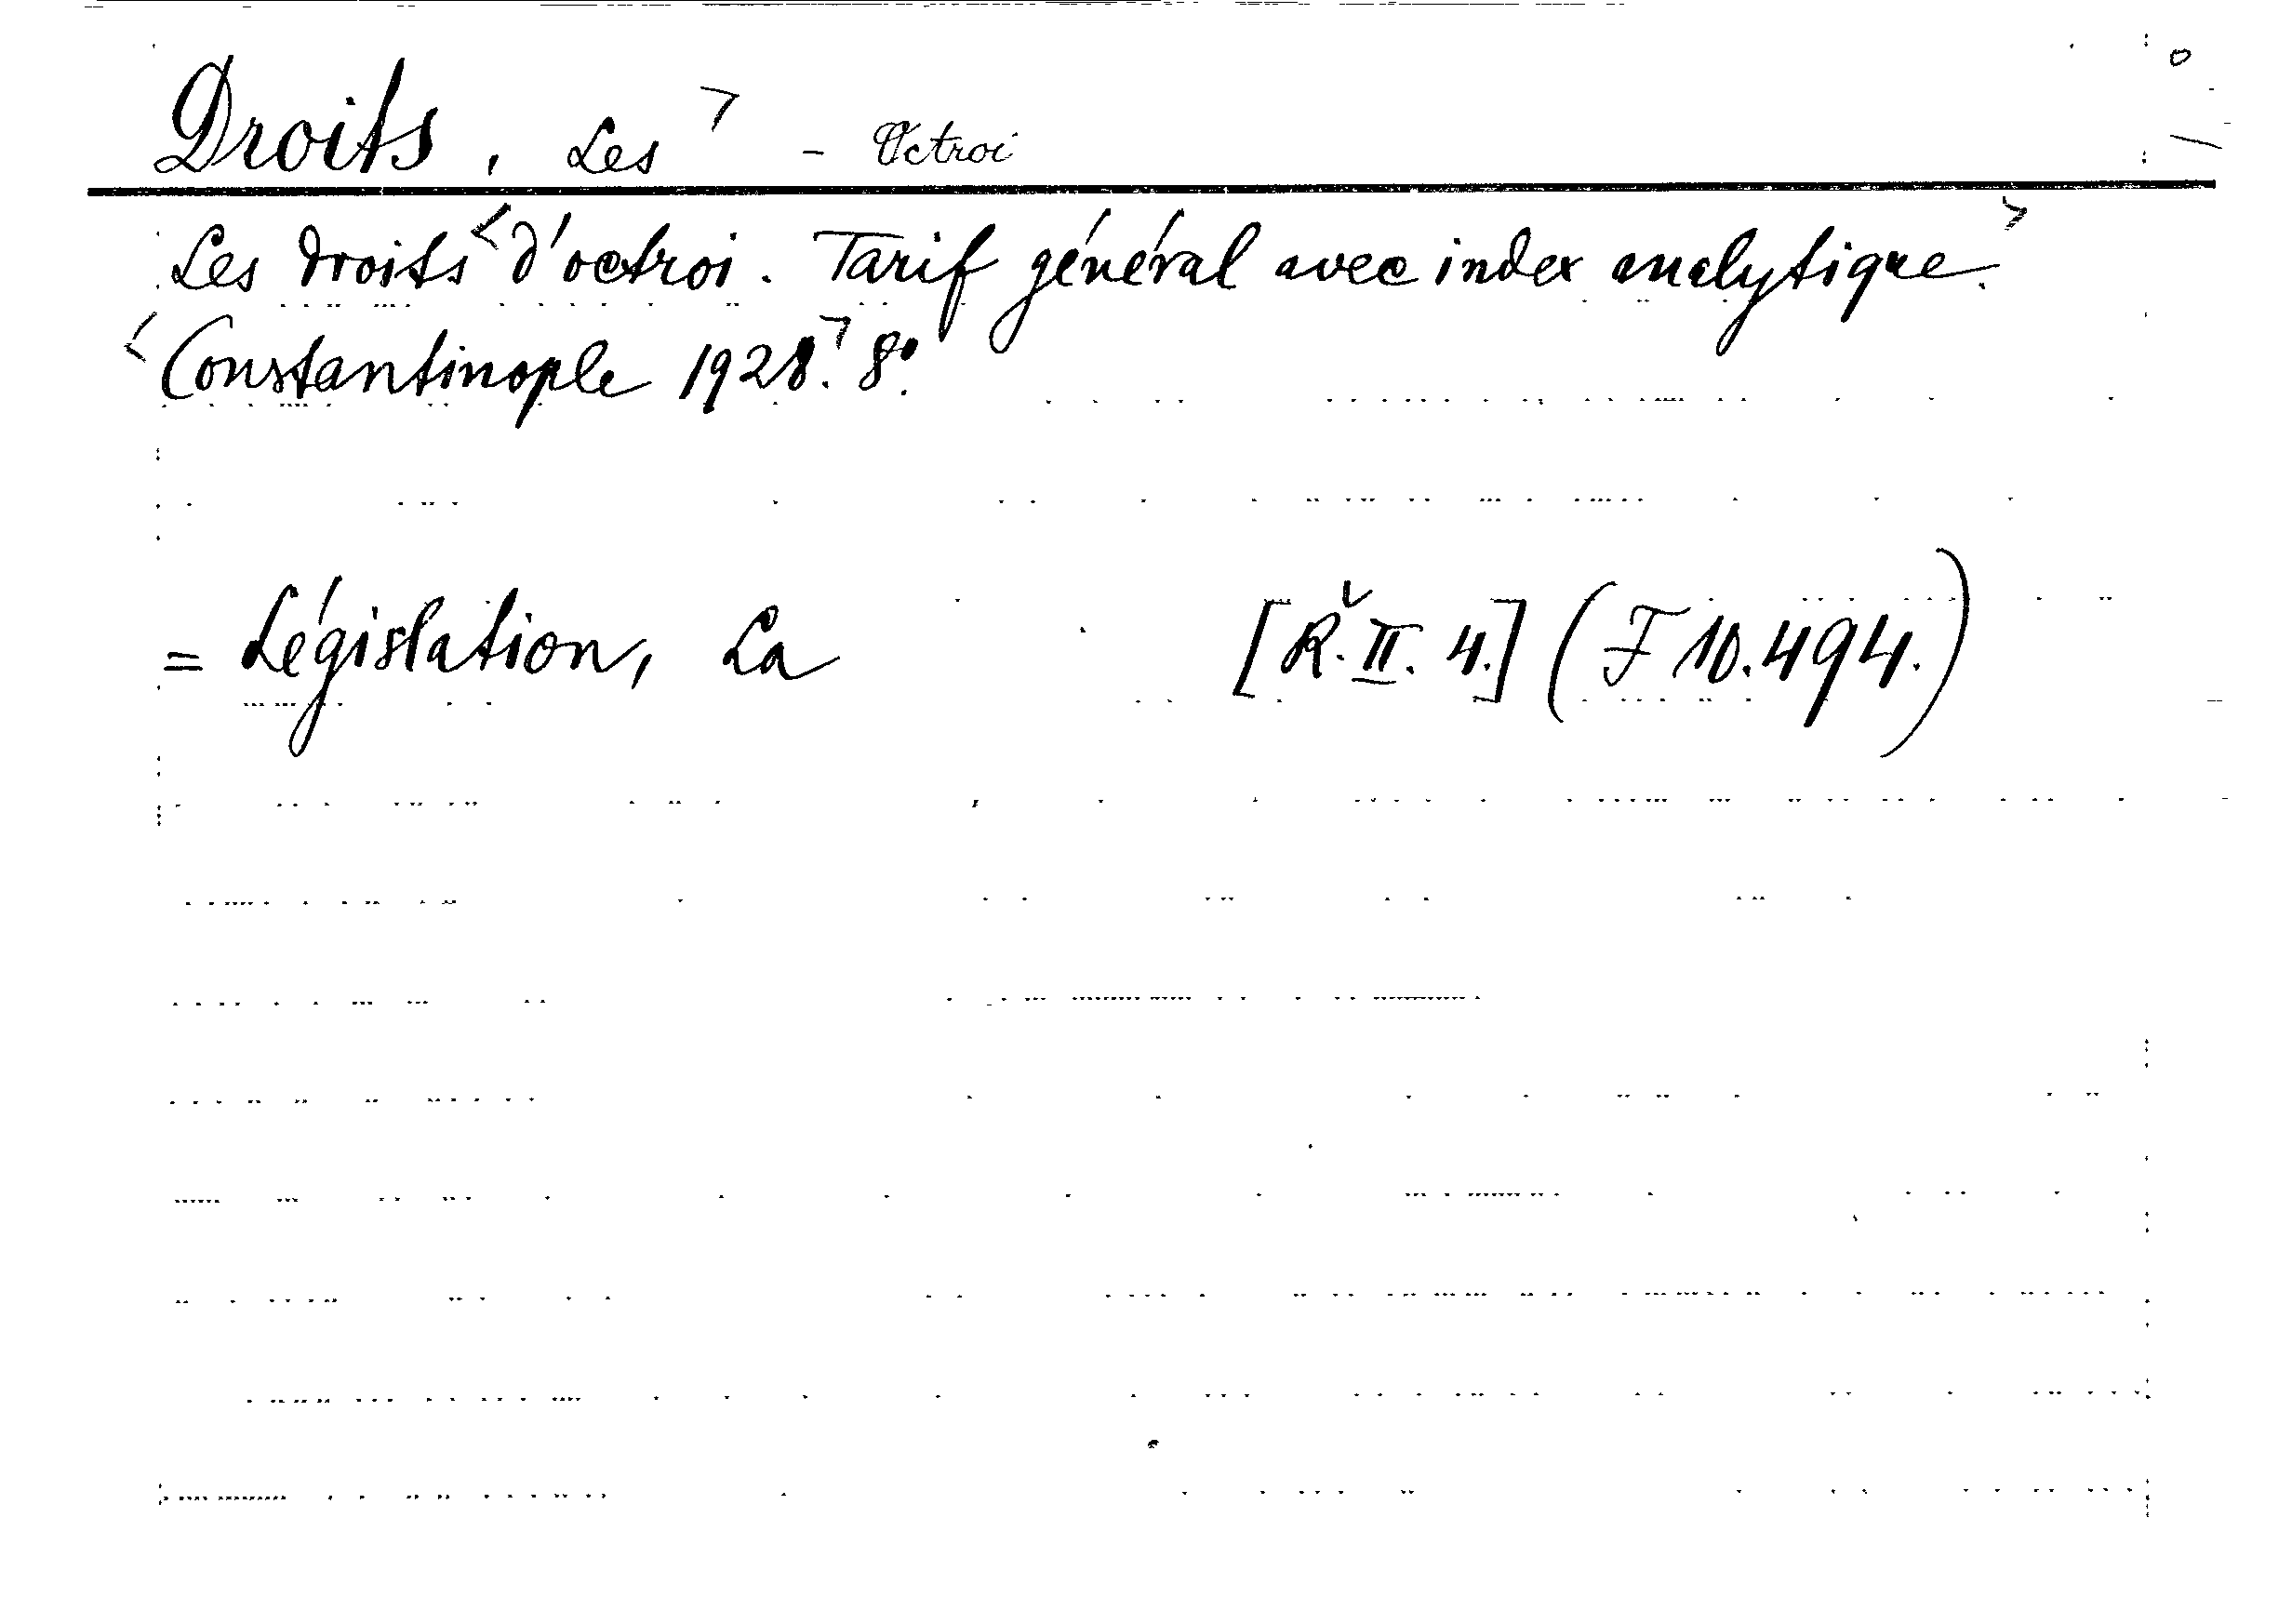 Droits, Les - Octroi
Les droits d'octroi. Tarif général avec index analytique.
Constantinople 1928. 8°.
= Législation, La [Ř. II. 4.] (F 10.494.)